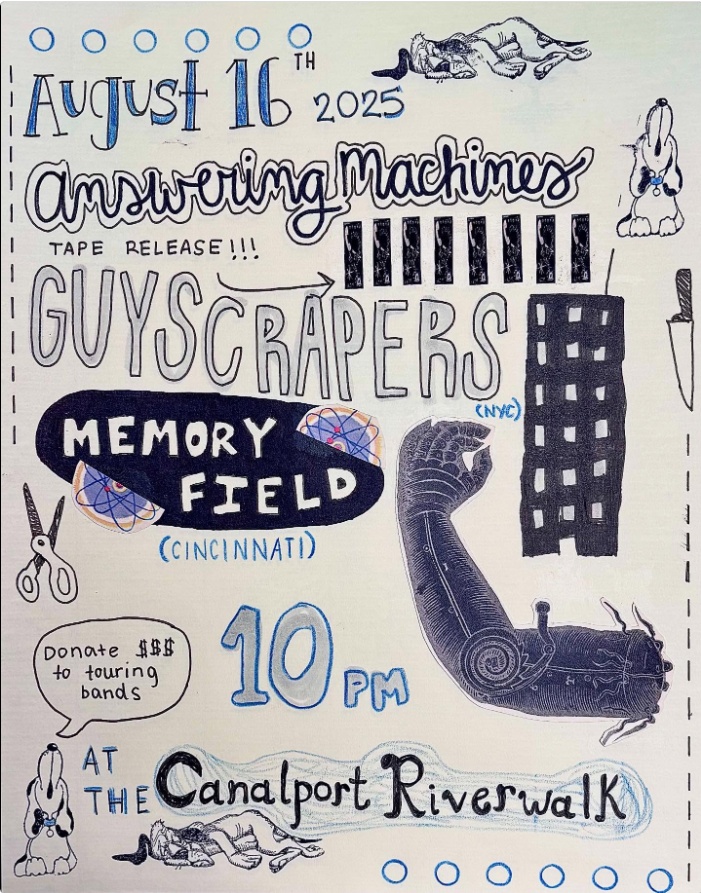 August 16TH 2025
Answering Machines
TAPE RELEASE!!!
GUYSCRAPERS
(NYC)
MEMORY
FIELD
(CINCINNATI)
10 PM
Donate $$$
to touring
bands
AT
THE Canalport Riverwalk